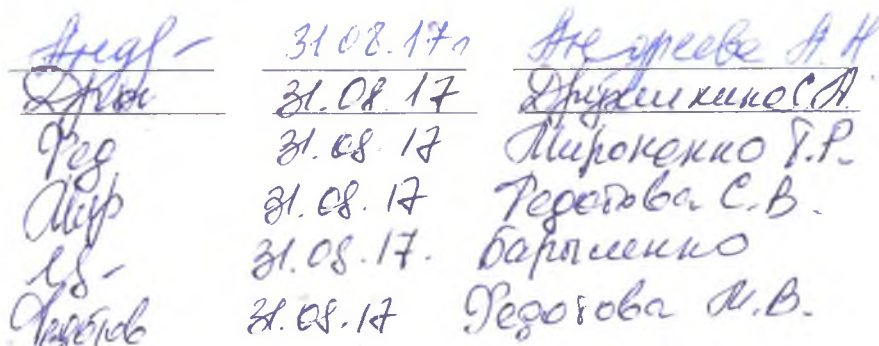 Анд 31.08.17г Андреева А.Н
31.08.17 Дружинкина С.А.
Фед 31.08.17 Мироненко Т.Р.
Мир 31.08.17 Федотова С.В.
31.08.17. Барыленко
Федотов 31.08.17 Федотова М.В.